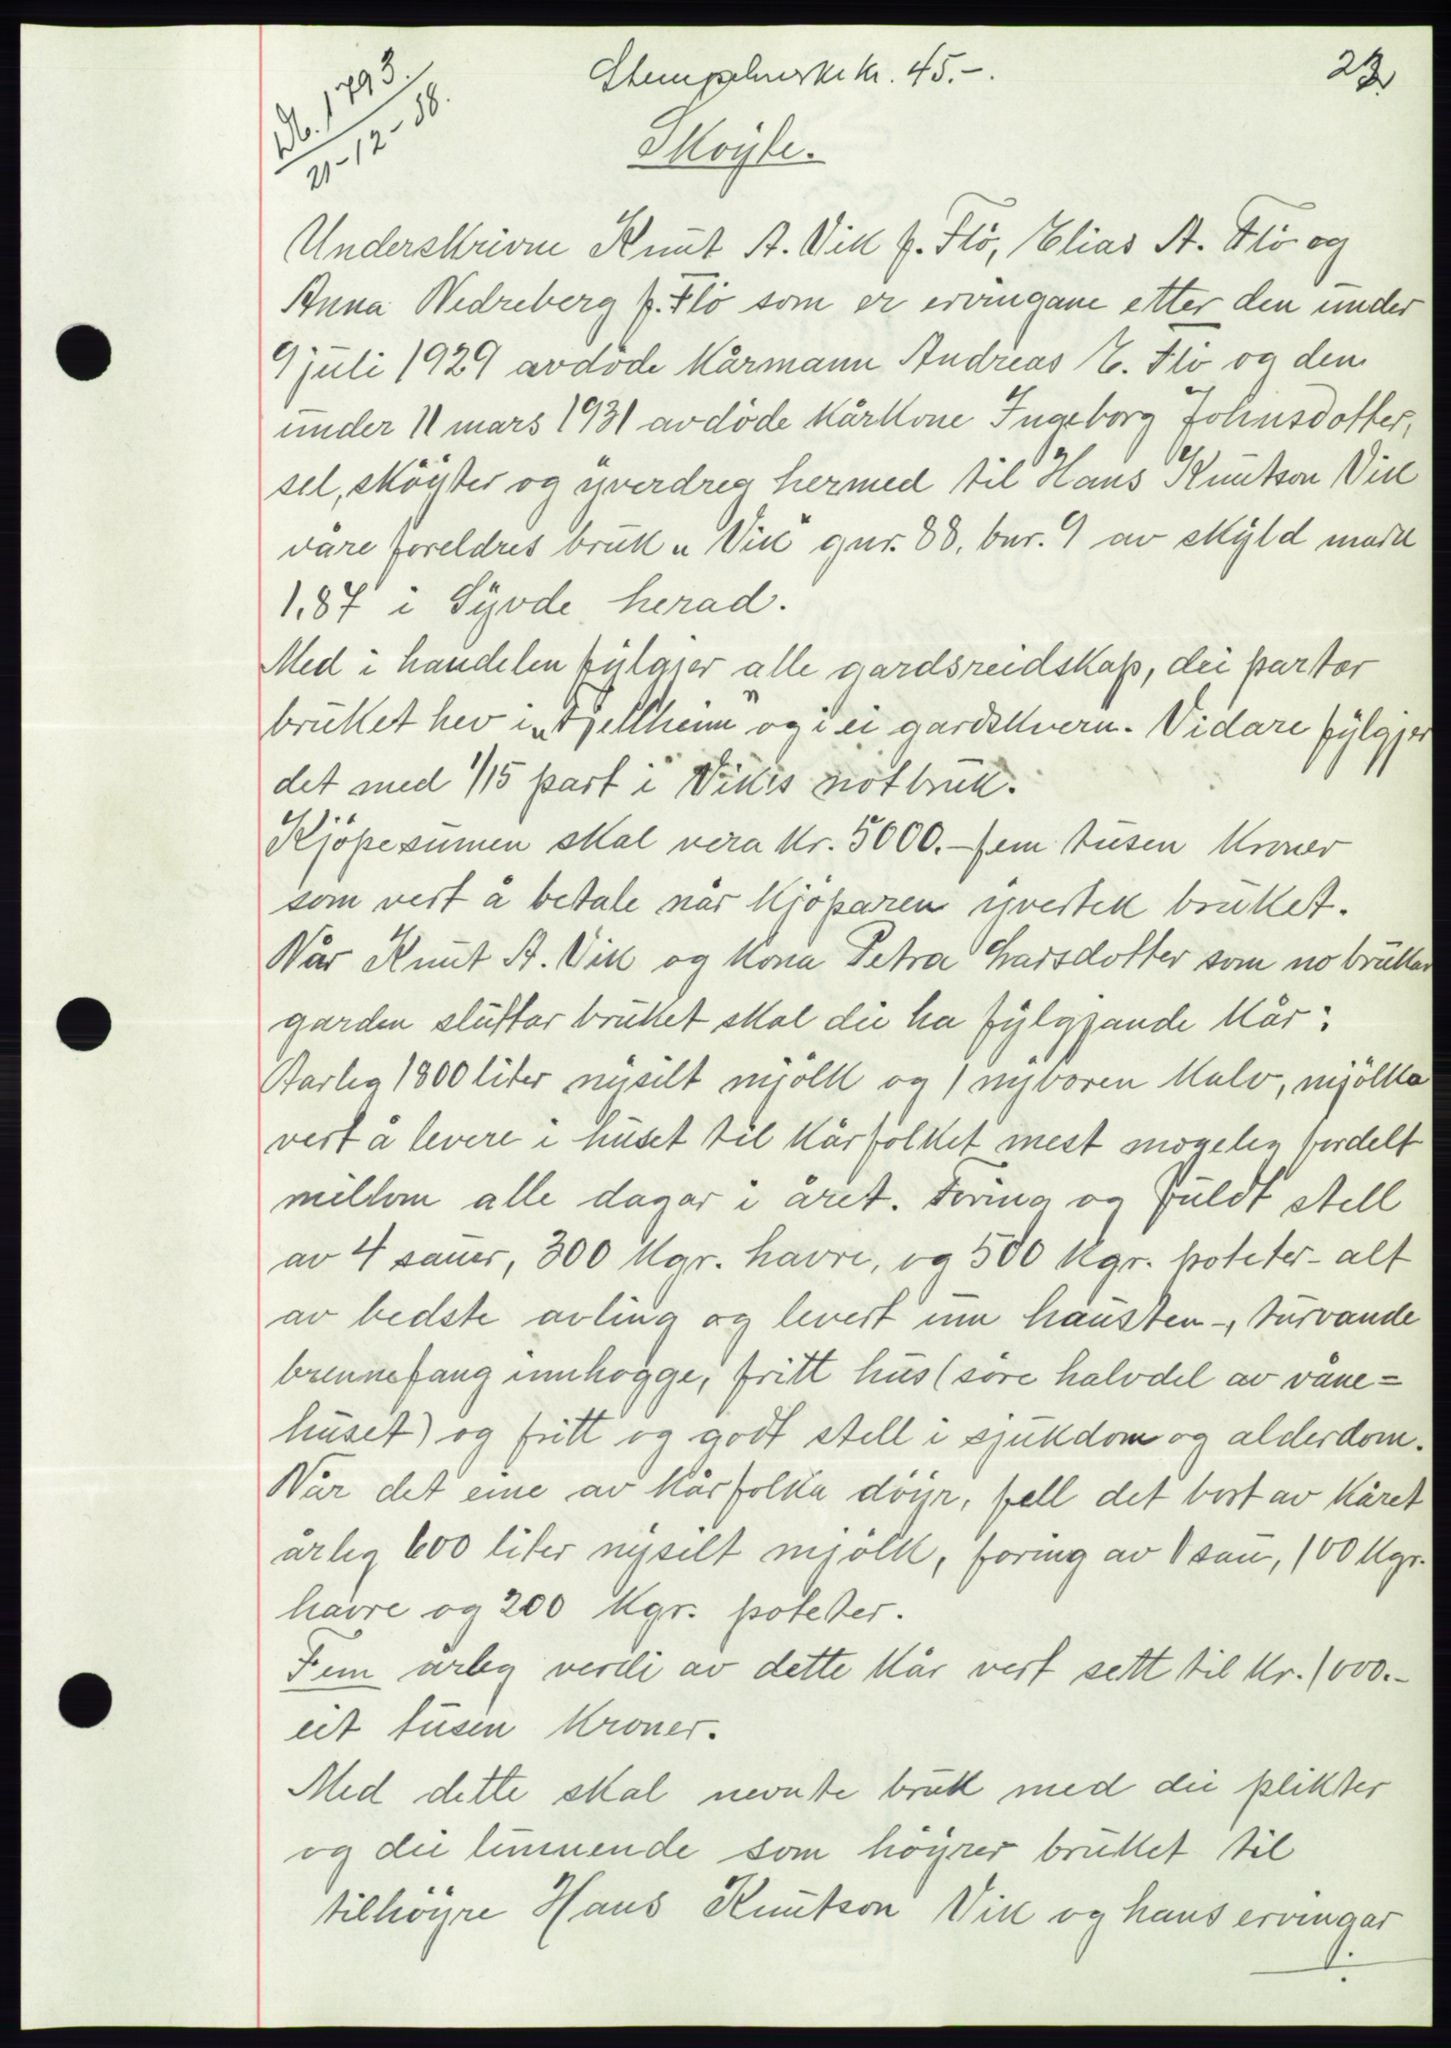 Nr. 1793.
21-12-38.
Stempelmerke kr. 45.-.
23
Skøyte.
Underskrivne Knut A. Vik f. Flö, Elias A. Flö og
Anna Nedreberg f. Flö som er ervingane etter den under
9 juli 1929 avdöde kårmann Andreas E. Flö og den
under 11 mars 1931 avdöde kårkone Ingeborg Johnsdotter,
sel, sköyter og yverdreg hermed til Hans Knutson Vik
våre foreldres bruk „Vik" gnr. 88, bnr. 9 av skyld mark
1.87 i Syvde herad.
Med i handelen fylgjer alle gardsreidskap, dei partar
bruket hev i „Fjellheim" og i ei gardskvern. Vidare fylgjer
det med 1/15 part i Viks notbruk.
Kjöpesumen skal vera kr. 5000.- fem tusen kroner
som vert å betale når kjöparen yvertek bruket.
Når Knut A. Vik og kona Petra Larsdotter som no brukar
garden sluttar bruket skal dei ha fylgjande kår:
Aarleg 1800 liter nysilt mjölk og 1 nyboren kalv, mjölka
vert å levere i huset til kårfolket mest mogeleg fordelt
millom alle dagar i året. Foring og fuldt stell
av 4 sauer, 300 kgr. havre, og 500 kgr. poteter - alt
av bedste avling og levert um hausten -, turvande
brennefang innhogge, fritt hus (söre halvdel av våne=
huset) og fritt og godt stell i sjukdom og alderdom.
Når det eine av kårfolka döyr, fell det bort av kåret
årleg 600 liter nysilt mjölk, foring av 1 sau, 100 kgr.
havre og 200 kgr. poteter.
Fem årleg verdi av dette kår vert sett til kr. 1000.-
eit tusen kroner.
Med dette skal nevnte bruk med dei plikter
og dei lunnende som höyrer bruket til
tilhöyre Hans Knutson Vik og hans ervingar